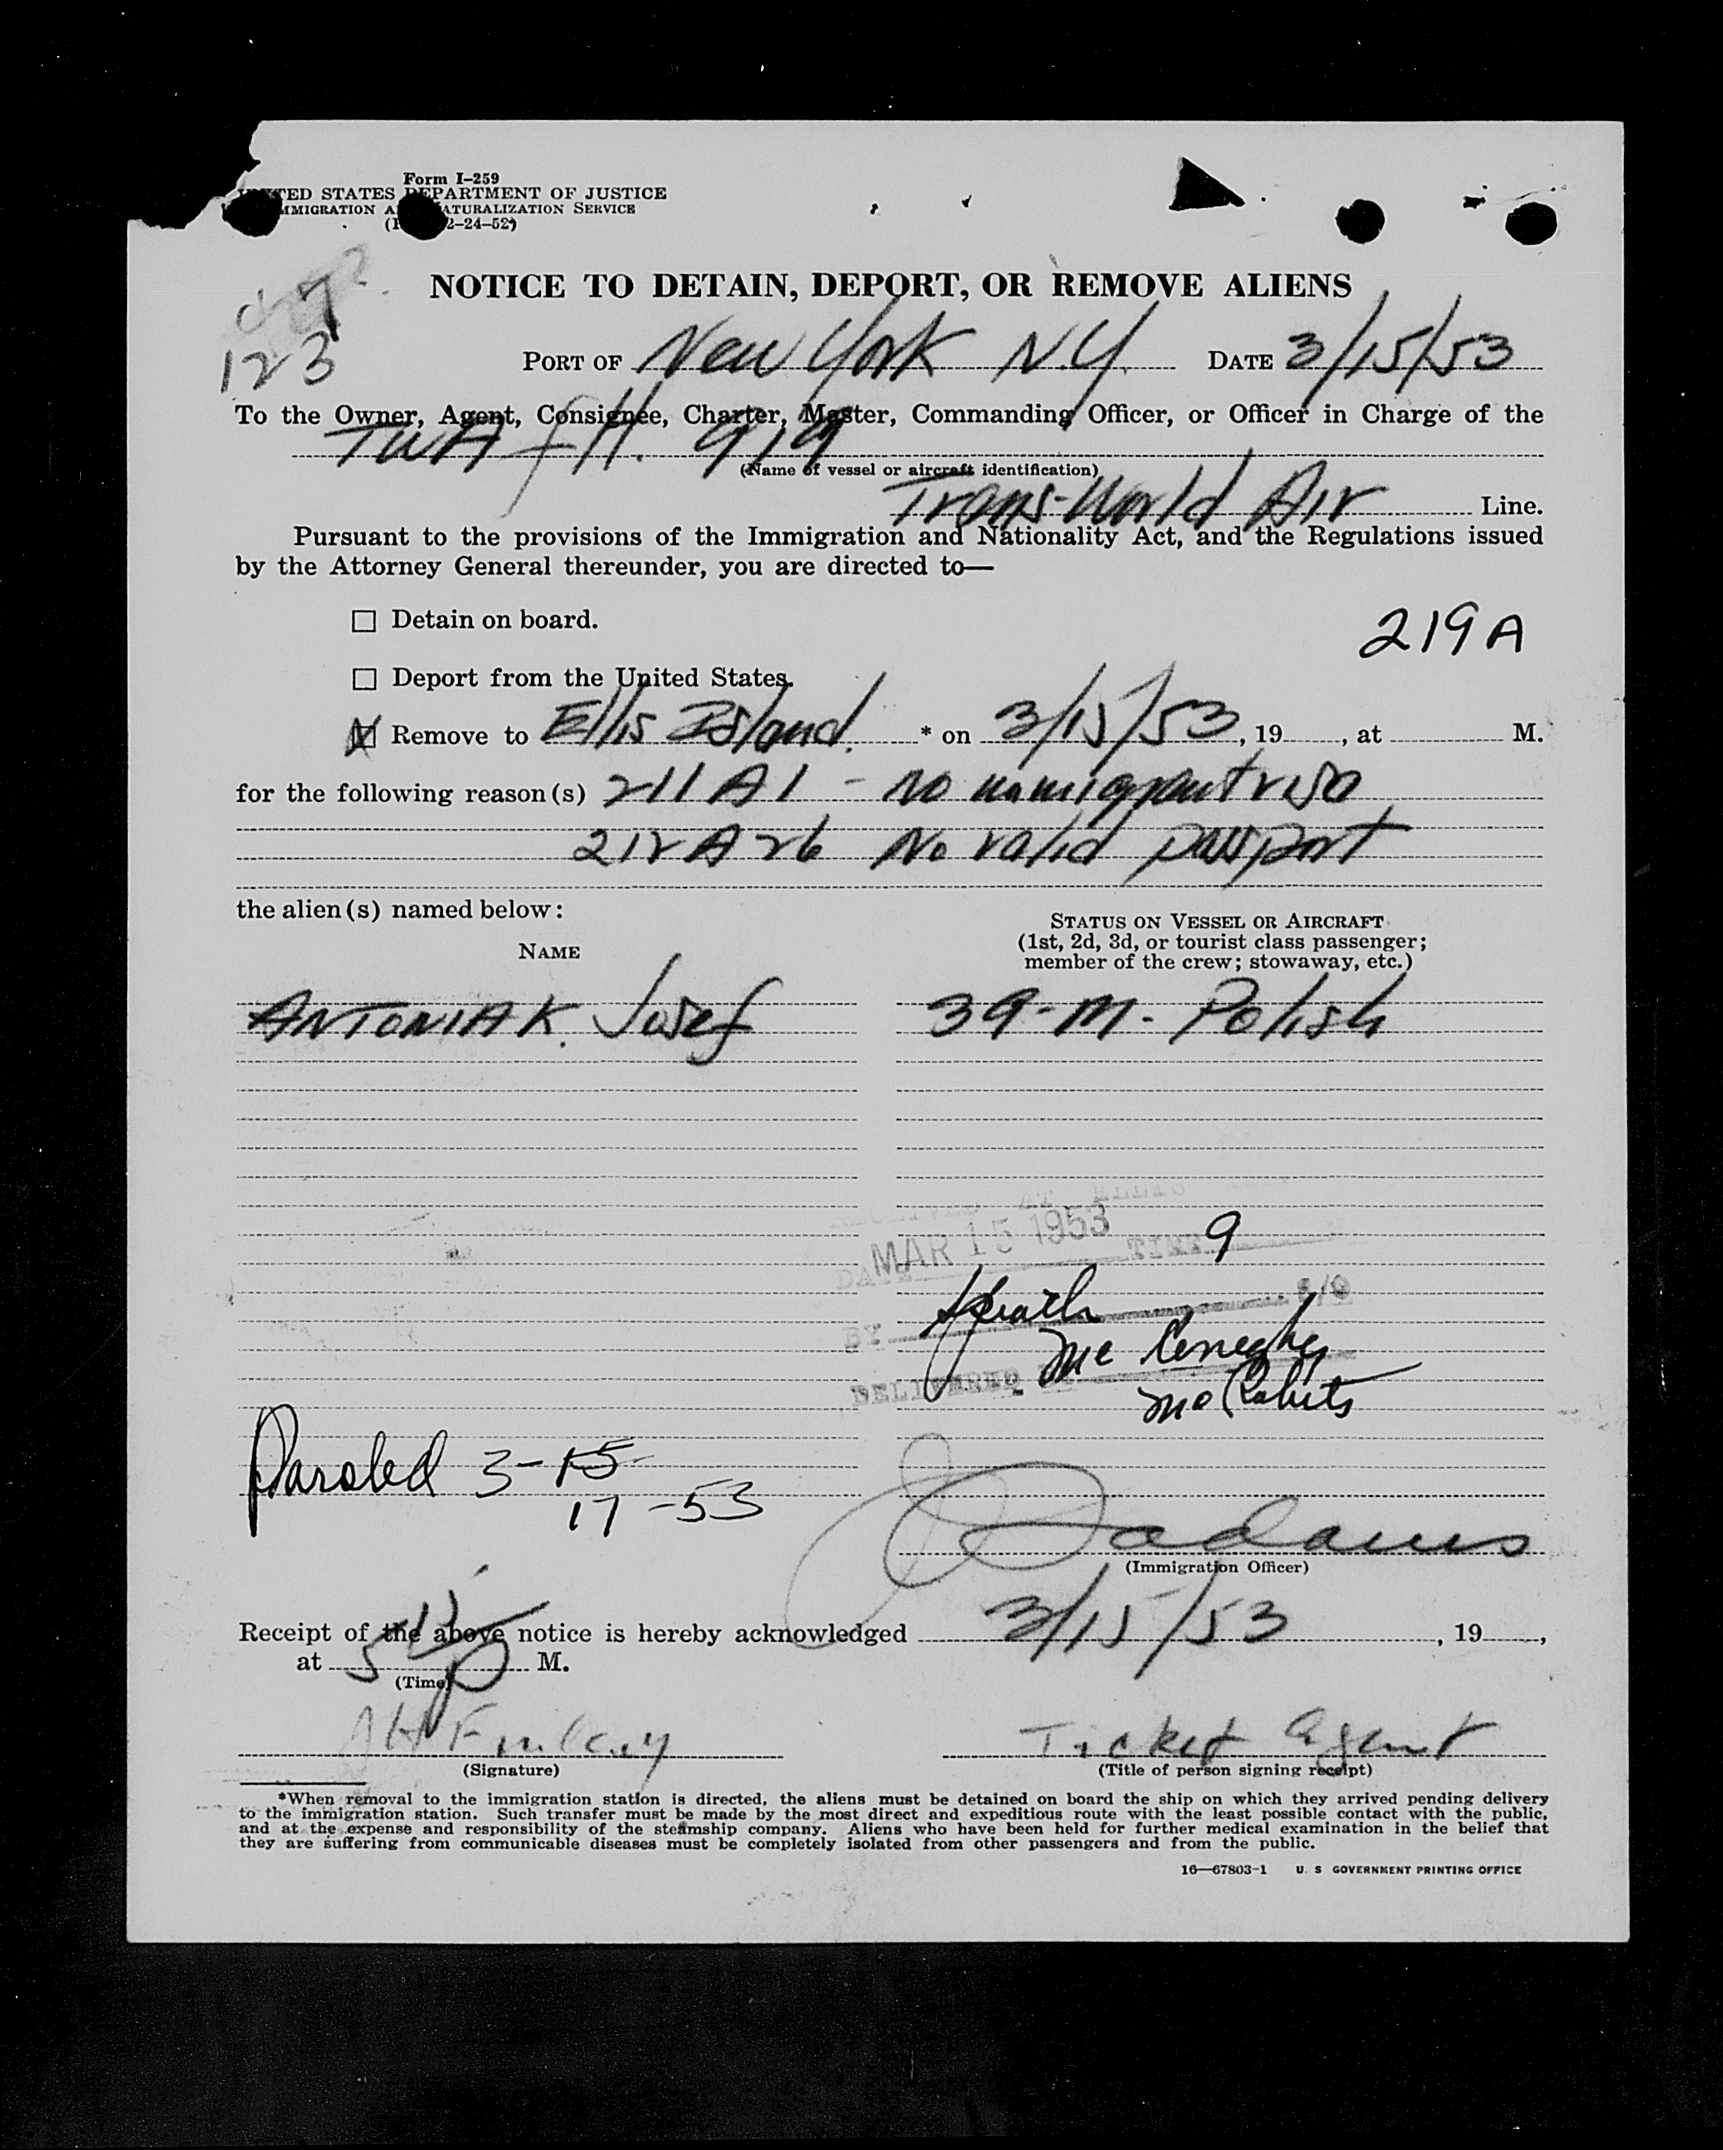 Form I-259
TED STATES DEPARTMENT OF JUSTICE
MMIGRATION A ATURALIZATION SERVICE
2-24-52)
123
NOTICE TO DETAIN, DEPORT, OR REMOVE ALIENS
PORT OF New York N.Y. DATE 3/15/53
To the Owner, Agent, Consignee, Charter, Master, Commanding Officer, or Officer in Charge of the
TWA flt. 919
(Name of vessel or aircraft identification)
Trans-World Air Line.
Pursuant to the provisions of the Immigration and Nationality Act, and the Regulations issued
by the Attorney General thereunder, you are directed to—
☐ Detain on board.
219A
☐ Deport from the United States.
☒ Remove to Ellis Island. * on 3/15/53, 19 , at M.
for the following reason(s) 211 A1 - No immigrant visa
212 A 26 No valid passport
the alien(s) named below:
STATUS ON VESSEL OR AIRCRAFT
(1st, 2d, 3d, or tourist class passenger;
NAME
member of the crew; stowaway, etc.)
ANTONIAK. Josef 39-M-Polish
AT ELLIS
MAR 15 1953 9
DATE TIME
BY
DELIVERED
Paroled 3-15-
17-53
Adams
(Immigration Officer)
Receipt of the above notice is hereby acknowledged 3/15/53, 19 ,
at 5 15 P M.
(Time)
Ticket Agent
(Signature) (Title of person signing receipt)
*When removal to the immigration station is directed, the aliens must be detained on board the ship on which they arrived pending delivery
to the immigration station. Such transfer must be made by the most direct and expeditious route with the least possible contact with the public,
and at the expense and responsibility of the steamship company. Aliens who have been held for further medical examination in the belief that
they are suffering from communicable diseases must be completely isolated from other passengers and from the public.
16—67803-1 U. S GOVERNMENT PRINTING OFFICE